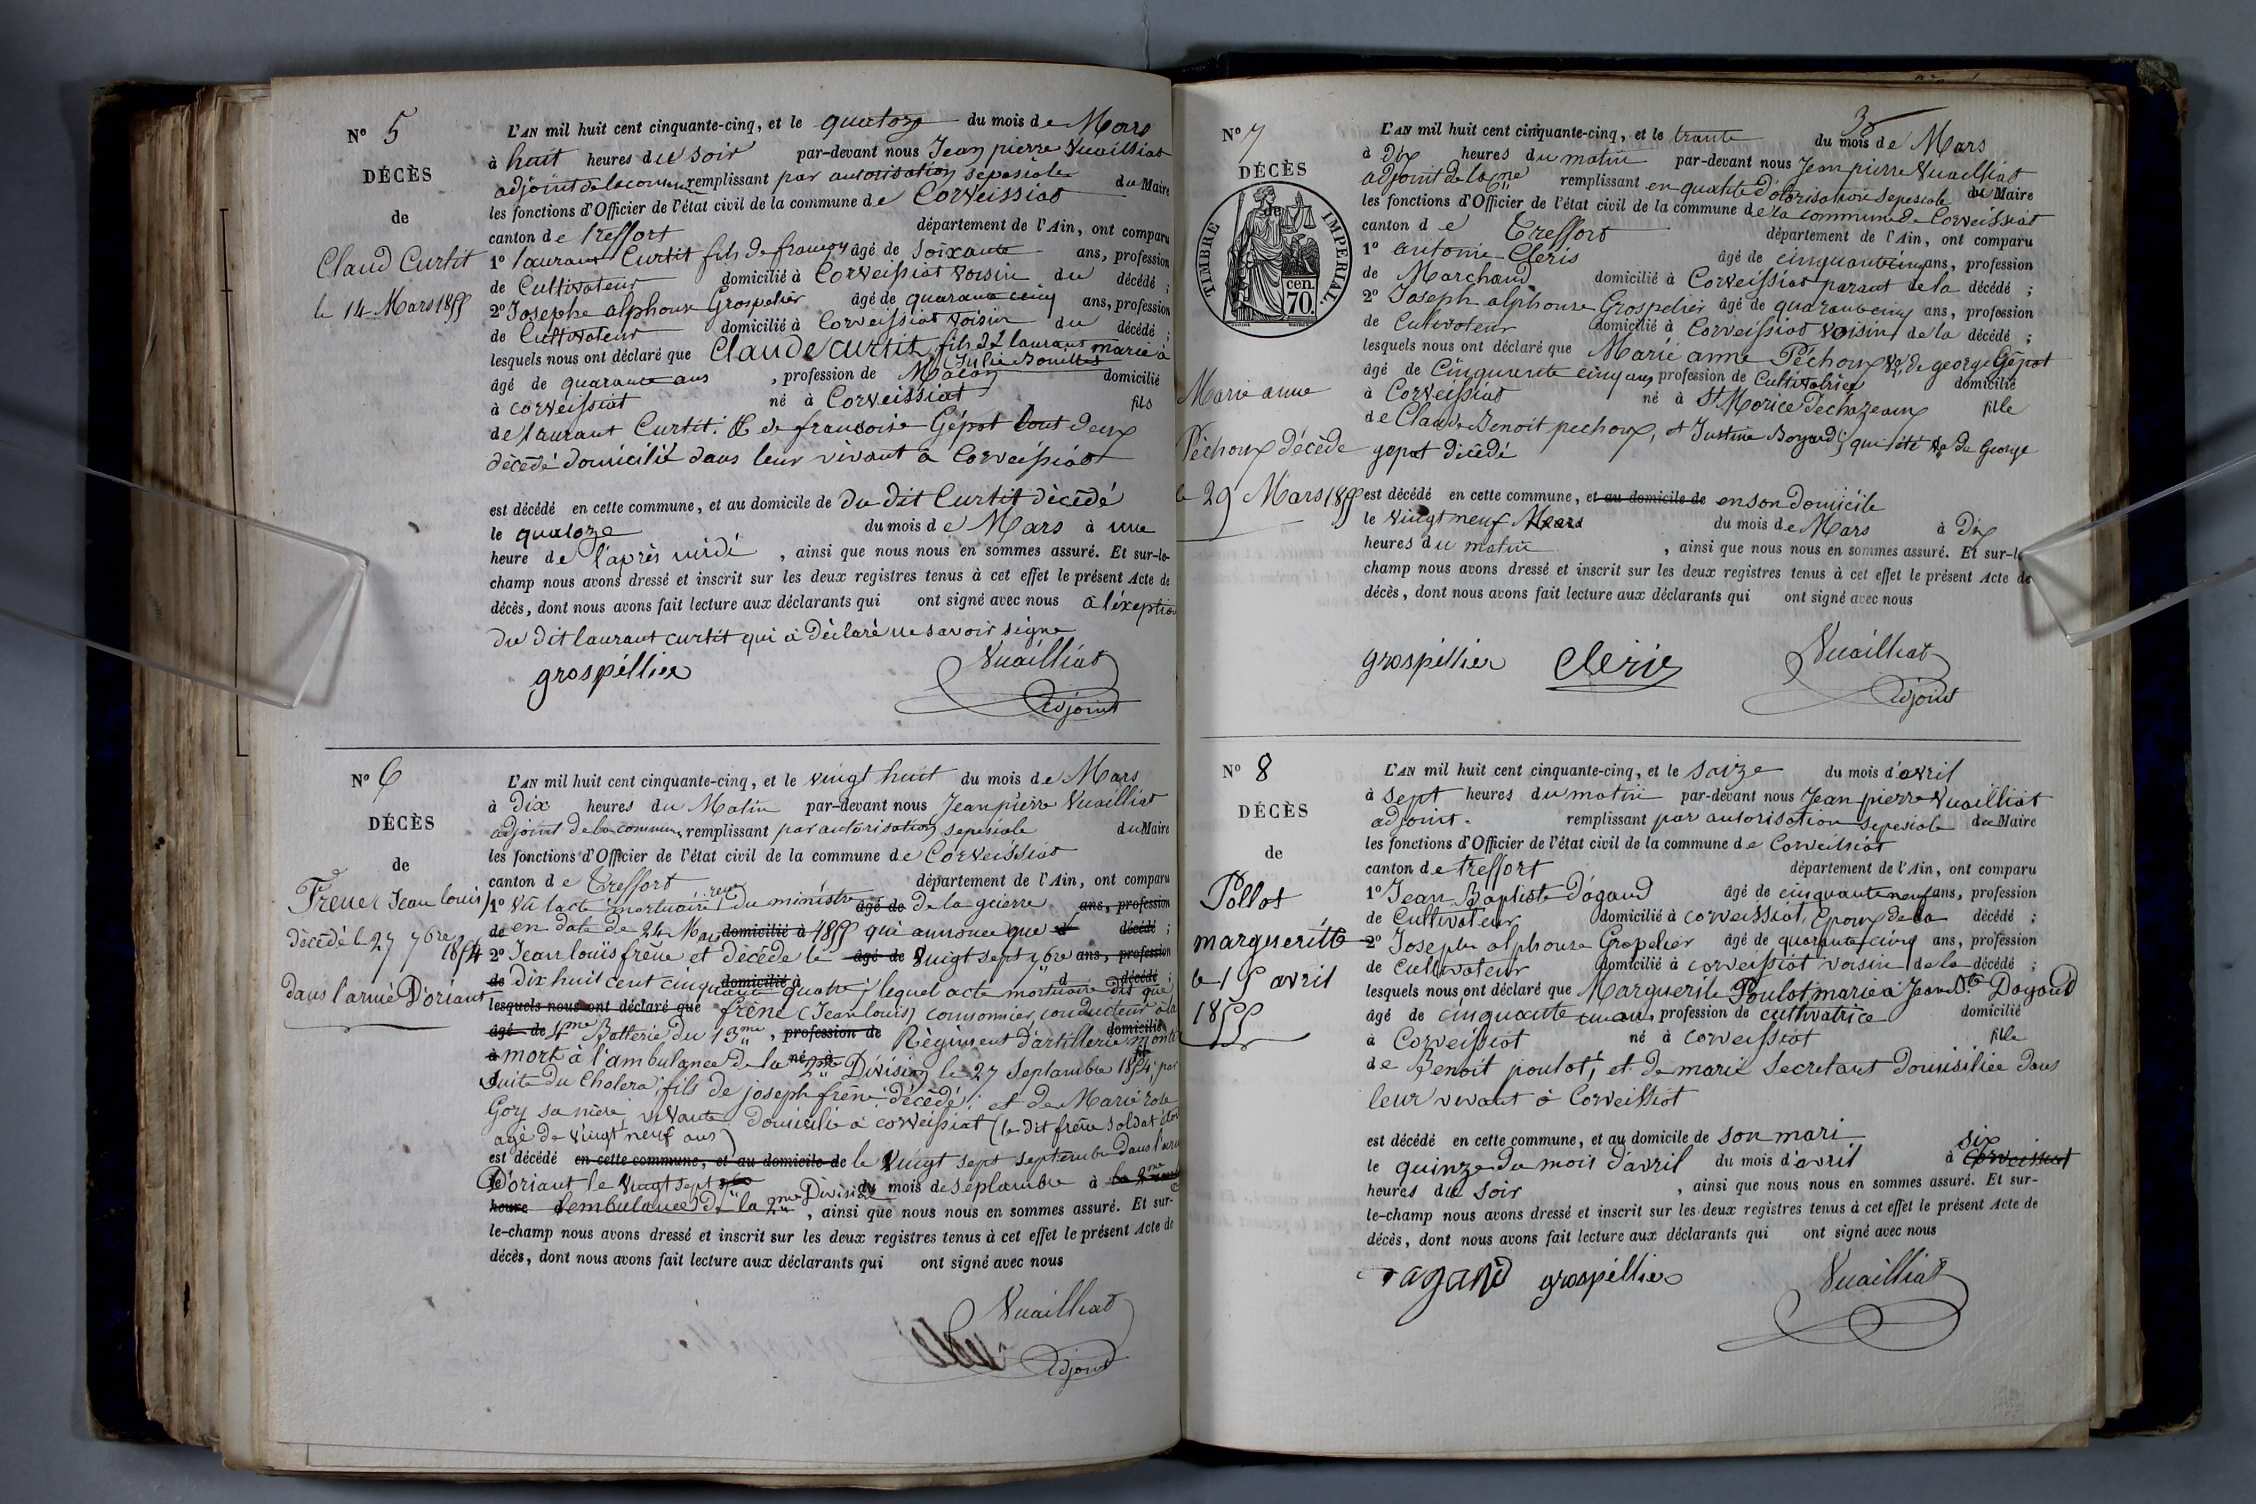 N° 5
DÉCÈS
de
Claud Curtit
le 14 Mars 1855
L'AN mil huit cent cinquante-cinq, et le quatorze du mois de Mars
à huit heures du soir par-devant nous Jean pierre Vuailliat
adjoint de la commune remplissant par autorisation sepesiale du Maire
les fonctions d'Officier de l'état civil de la commune de Corveissiat
canton de treffort département de l'Ain, ont comparu
1° laurant Curtit fils de françoy âgé de Soixante ans, profession
de Cultivateur domicilié à Corveissiat voisin du décédé ;
2° Josephe alphonse Grospelier âgé de quarante cinq ans, profession
de Cultivateur domicilié à Corveissiat voisin du décédé ;
lesquels nous ont déclaré que Claude Curtit, fils de laurant marié à
Julie Bouillet
âgé de quarante ans , profession de Maçon domicilié
à corveissiat né à Corveissiat fils
de laurant Curtit. & de francoise Gépot tout deux
décédé domicilié dans leur vivant à Corveissiat
est décédé en cette commune, et au domicile de du dit Curtit décédé
le quatoze du mois de Mars à une
heure de l'après midi , ainsi que nous nous en sommes assuré. Et sur-le-
champ nous avons dressé et inscrit sur les deux registres tenus à cet effet le présent Acte de
décès, dont nous avons fait lecture aux déclarants qui ont signé avec nous a l'éxeption
du dit laurant curtit qui a déclaré ne savoir signe
grospéllier Vuailliat
adjoint
N° 6
DÉCÈS
de
Frener Jean louis
décédé le 27 7bre 1854
dans l'armé D'oriant
L'AN mil huit cent cinquante-cinq, et le vingt huit du mois de Mars
à Dix heures du Matin par-devant nous Jean pierre Vuailliat
adjoint de la commune remplissant par autorisation sepesiale du Maire
les fonctions d'Officier de l'état civil de la commune de Corveissiat
canton de Treffort département de l'Ain, ont comparu
1° Vu lacte mortuaire du ministre âgé de de la guerre ans, profession
de en date de 24 Mars domicilié à 1855 qui annonce que décédé ;
2° Jean louis frêne et décédé le âgé de Vuigt sept 7bre ans, profession
de Dix huit cent cinquante domicilié à quatre, lequel acte mortuaire dit que décédé ;
lesquels nous ont déclaré que frêne (Jean louis) cannonier conducteur à la
âgé de 4me Batterie du 13me , profession de Régiment d'artillerie monté domicilié
à mort à l'ambulance de la né à 2me Division le 27 Septambre 1854 par
Suite du Cholera fils de joseph frêne décédé ; et de Marie rose
Goy sa mère vivante domicilié à corveissiat (le dit frêne soldat
agé de vingt neuf ans)
est décédé en cette commune, et au domicile de le Vuigt sept septembre dans l'armé
D'oriant le vuigt sept du mois de septambre à
heure l'embulance de la 2me Division , ainsi que nous nous en sommes assuré. Et sur-
le-champ nous avons dressé et inscrit sur les deux registres tenus à cet effet le présent Acte de
décès, dont nous avons fait lecture aux déclarants qui ont signé avec nous
Vuailliat
adjoint
3
N° 7
DÉCÈS
de
TIMBRE IMPERIAL.
70. cen.
Marie anne
Péchoux décédé
le 29 Mars 1855
L'AN mil huit cent cinquante-cinq, et le trante du mois de Mars
à dix heures du matin par-devant nous Jean pierre Vuailliat
adjoint de la Cne remplissant en qualité d'otorisation sepesiale du Maire
les fonctions d'Officier de l'état civil de la commune de la commune de Corveissiat
canton de Treffort département de l'Ain, ont comparu
1° antonie Cleris âgé de cinquante cinq ans, profession
de Marchand domicilié à Corveissiat parant de la décédé ;
2° Joseph alphonse Grospelier âgé de quarante cinq ans, profession
de Cultivateur domicilié à Corveissiat voisin de la décédé ;
lesquels nous ont déclaré que Marie anne Péchoux Ve de george Gépot
âgé de Cinquante cinq ans profession de Cultivatrice domicilié
à Corveissiat né à St Morice Dechazeaux fille
de Claude Benoit pechoux, et Justine Boyard ; qui été Ve de George
gepot décédé
est décédé en cette commune, et au domicile de en son domicile
le vingt neuf Mars du mois de Mars à Dix
heures du matin , ainsi que nous nous en sommes assuré. Et sur-le-
champ nous avons dressé et inscrit sur les deux registres tenus à cet effet le présent Acte de
décès, dont nous avons fait lecture aux déclarants qui ont signé avec nous
grospéllier Cleris Vuailliat
adjoint
N° 8
DÉCÈS
de
Pollot
margueritte
le 15 avril
1855
L'AN mil huit cent cinquante-cinq, et le saize du mois d'avril
à sept heures du matin par-devant nous Jean pierre Vuailliat
adjoint. remplissant par autorisation sepesiale du Maire
les fonctions d'Officier de l'état civil de la commune de Corveissiat
canton de treffort département de l'Ain, ont comparu
1° Jean Baptiste Dagaud âgé de cinquante neuf ans, profession
de Cultivateur domicilié à corveissiat, Epoux de la décédé ;
2° Joseph alphonse Gropelier âgé de quarante cinq ans, profession
de Cultivateur domicilié à corveissiat voisin de la décédé ;
lesquels nous ont déclaré que Marguerite Poulot marié à Jean Bte Dagaud
âgé de cinquante un an, profession de cultivatrice domicilié
à Corveissiot né à corveissiot fille
de Benoit poulot, et de marie Secretant domisiliée dans
leur vivant à Corveissiot
est décédé en cette commune, et au domicile de son mari
le quinze du mois d'avril du mois d'avril à six Corveissiat
heures du soir , ainsi que nous nous en sommes assuré. Et sur-
le-champ nous avons dressé et inscrit sur les deux registres tenus à cet effet le présent Acte de
décès, dont nous avons fait lecture aux déclarants qui ont signé avec nous
Dagand grospéllier Vuailliat